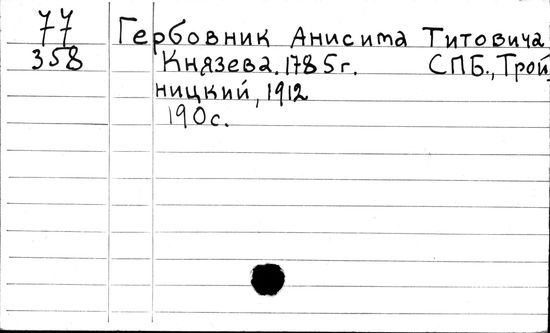 77 Гербовник Анисима Титовича
358 Князева. 1785 г. СПБ., Трой
ницкий, 1912
190 с.